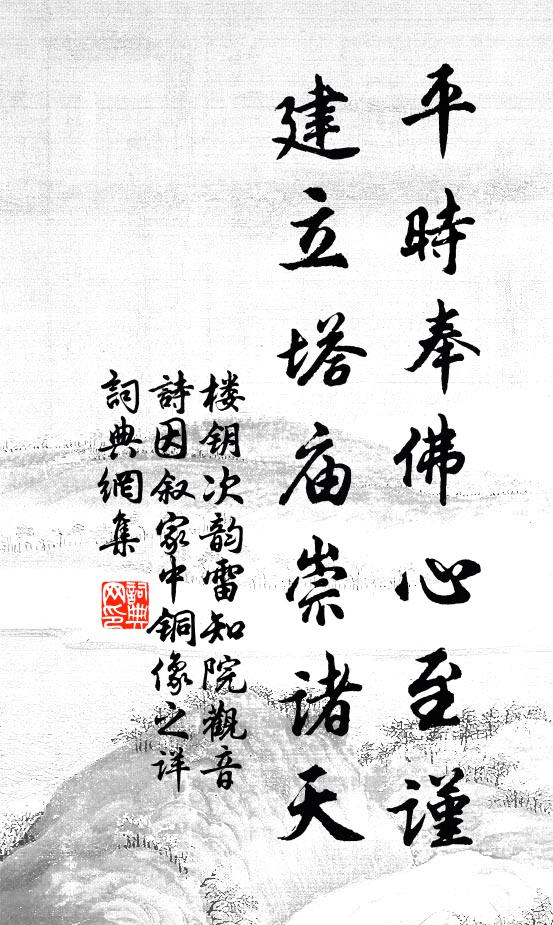 平時奉佛心至谨
建立塔庙崇诸天
楼钥次韵雷知院觀音
詩因叙家中铜像之详
詞典網集
詞典网印